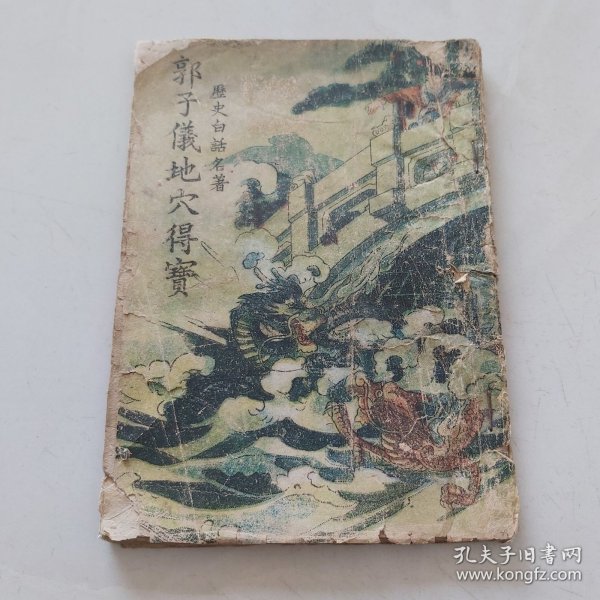 歷史白話名著
郭子儀地穴得寶
孔夫子旧书网
www.kongfz.com